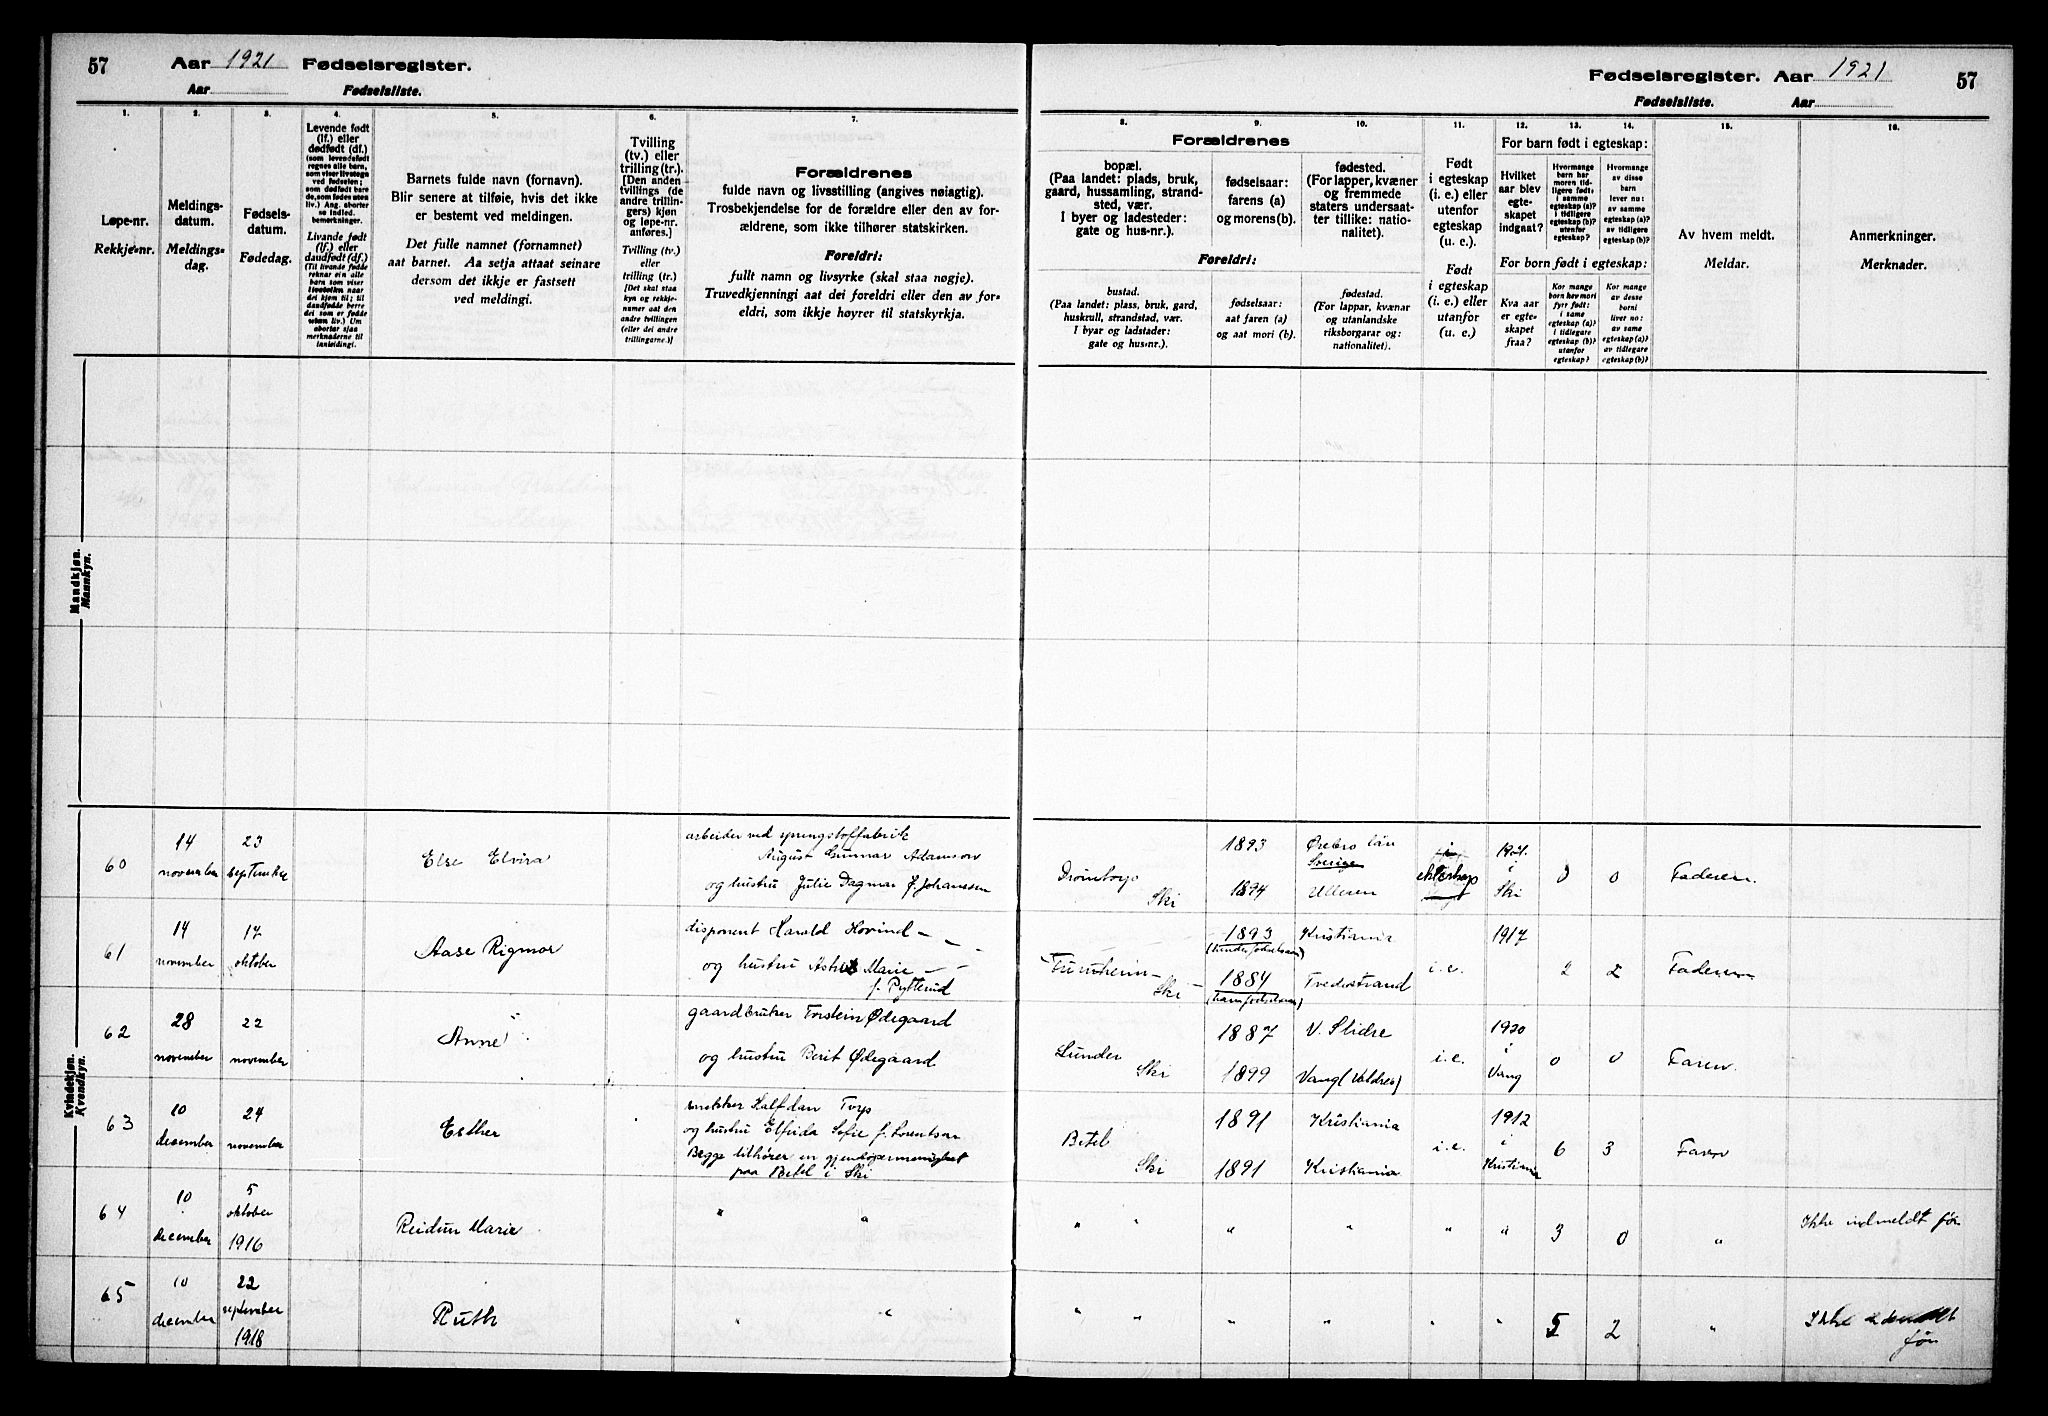 57
Aar 1921 Fødselsregister.
Aar Fødselsliste.
Fødselsregister. Aar 1921
57
Fødselsliste. Aar
1.
Løpe-nr.
Rekkje-nr.
2.
Meldings-
datum.
Meldings-
dag.
3.
Fødsels-
datum.
Fødedag.
4.
Levende født
(lf.) eller
dødfødt (df.)
(som levendefødt
regnes alle barn,
som viser livstegn
ved fødselen;
som dødfødt bare
de, som fødes uten
liv.) Ang. aborter
se indled.
bemerkninger.
Livande født
(lf.) eller
daudfødt (df.)
5.
Barnets fulde navn (fornavn).
Blir senere at tilføie, hvis det ikke
er bestemt ved meldingen.
Det fulle namnet (fornamnet)
aat barnet. Aa setja attaat seinare
dersom det ikkje er fastsett
ved meldingi.
6.
Tvilling
(tv.) eller
trilling (tr.).
[Den anden
tvillings (de
andre trillin-
gers) kjøn
og løpe-nr.
anføres.]
Tvilling (tv.)
eller
trilling (tr.)
[Det skal staa
kyn og rekkje-
numer aat den
andre tvillingen
(eller dei andre
trillingarne.)]
7.
Forældrenes
fulde navn og livsstilling (angives nøiagtig).
Trosbekjendelse for de forældre eller den av for-
ældrene, som ikke tilhører statskirken.
Foreldri:
fullt namn og livsyrke (skal staa nøgje).
Truvedkjenningi aat dei foreldri eller den av for-
eldri, som ikkje høyrer til statskyrkja.
8. 9. 10.
Forældrenes
bopæl.
(Paa landet: plads, bruk,
gaard, hussamling, strand-
sted, vær.
I byer og ladesteder:
gate og hus-nr.).
fødselsaar:
farens (a)
og morens(b).
fødested.
(For lapper, kvæner
og fremmede
staters undersaat-
ter tillike: natio-
nalitet).
Foreldri:
bustad.
(Paa landet: plass, bruk, gard,
huskrull, strandstad, vær.
I byar og ladstader:
gate og hus-nr.).
fødselsaar:
aat faren (a)
og aat mori (b).
fødestad.
(For lappar, kvænar
og utanlandske
riksborgarar og:
nationalitet).
11.
Født
i egteskap
(i. e.) eller
utenfor
egteskap
(u. e.).
Født
i egteskap
(i. e.) eller
utanfor
(u. e.)
12. 13. 14.
For barn født i egteskap:
Hvilket
aar blev
egte-
skapet
indgaat?
Hvormange
barn har
moren tid-
ligere født:
i samme
egteskap (a)?
i tidligere
egteskap (b)?
utenfor
egteskap?
Hvormange
av disse
barn
lever nu:
av samme
egteskap (a)?
av tidligere
egteskap (b)?
For born født i egteskap:
Kva aar
er egte-
skapet
fraa?
Kor mange
born hev mori
fyrr født:
i same
egteskap (a)?
i tidlegare
egteskap (b)?
utanfor
egteskap?
Kor mange
av desse
borni
liver no:
av same
egteskap (a)?
av tidlegare
egteskap (b)?
15.
Av hvem meldt.
Meldar.
16.
Anmerkninger.
Merknader.
Mandkjøn.
Mannkyn.
Kvindekjøn.
Kvendkyn.
60
14
november
23
september
Else Elvira
arbeider ved sprengstoffabrik
August Gunnar Adamson
og hustru Julie Dagmar f. Johansen
Drømtorp
Ski
1893
1894
Ørebro län
Sverige
Ulleren
i
ekteskap
1921
i
Ski
0
0
Faderen
61
14
november
17
oktober
Aase Rigmor
disponent Harald Hovind
og hustru Astrid Marie
f. Rytterud
Ski
1893
1884
Kristiania
Fredrikstrand
i.e.
1917
2
2
Faderen
62
28
november
22
november
Anne
gaardbruker Torstein Ødegaard
og hustru Berit Ødegaard
Lunder
Ski
1887
1899
V. Slidre
Vang (Valdres)
i.e.
1920
i
Vang
0
0
Faren
63
10
desember
24
november
Esther
snekker Halfdan Torp
og hustru Elfrida Sofie f. Lorentsen
Begge tilhører en gjendøpermenighet
paa Betel i Ski
Betel
Ski
1891
1891
Kristiania
Kristiania
i.e.
1912
i
Kristiania
6
3
Faren
64
10
december
5
oktober
1916
Reidun Marie
" "
" " " " " "
3
0
"
Ikke indmeldt før
65
10
december
22
september
1918
Ruth
" "
" " " " " "
5
2
"
Ikke
før